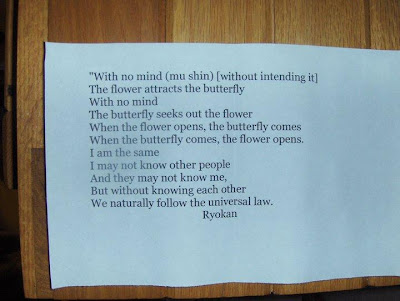 "With no mind (mu shin) [without intending it]
The flower attracts the butterfly
With no mind
The butterfly seeks out the flower
When the flower opens, the butterfly comes
When the butterfly comes, the flower opens.
I am the same
I may not know other people
And they may not know me,
But without knowing each other
We naturally follow the universal law.
Ryokan